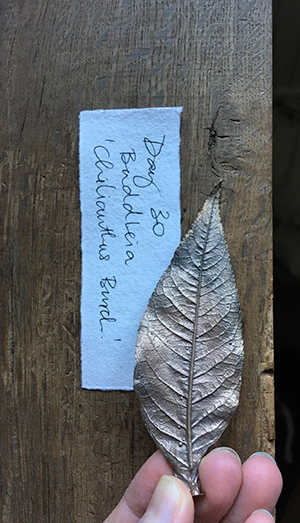 Day 30
Buddleia
'Chilianthus Bund'